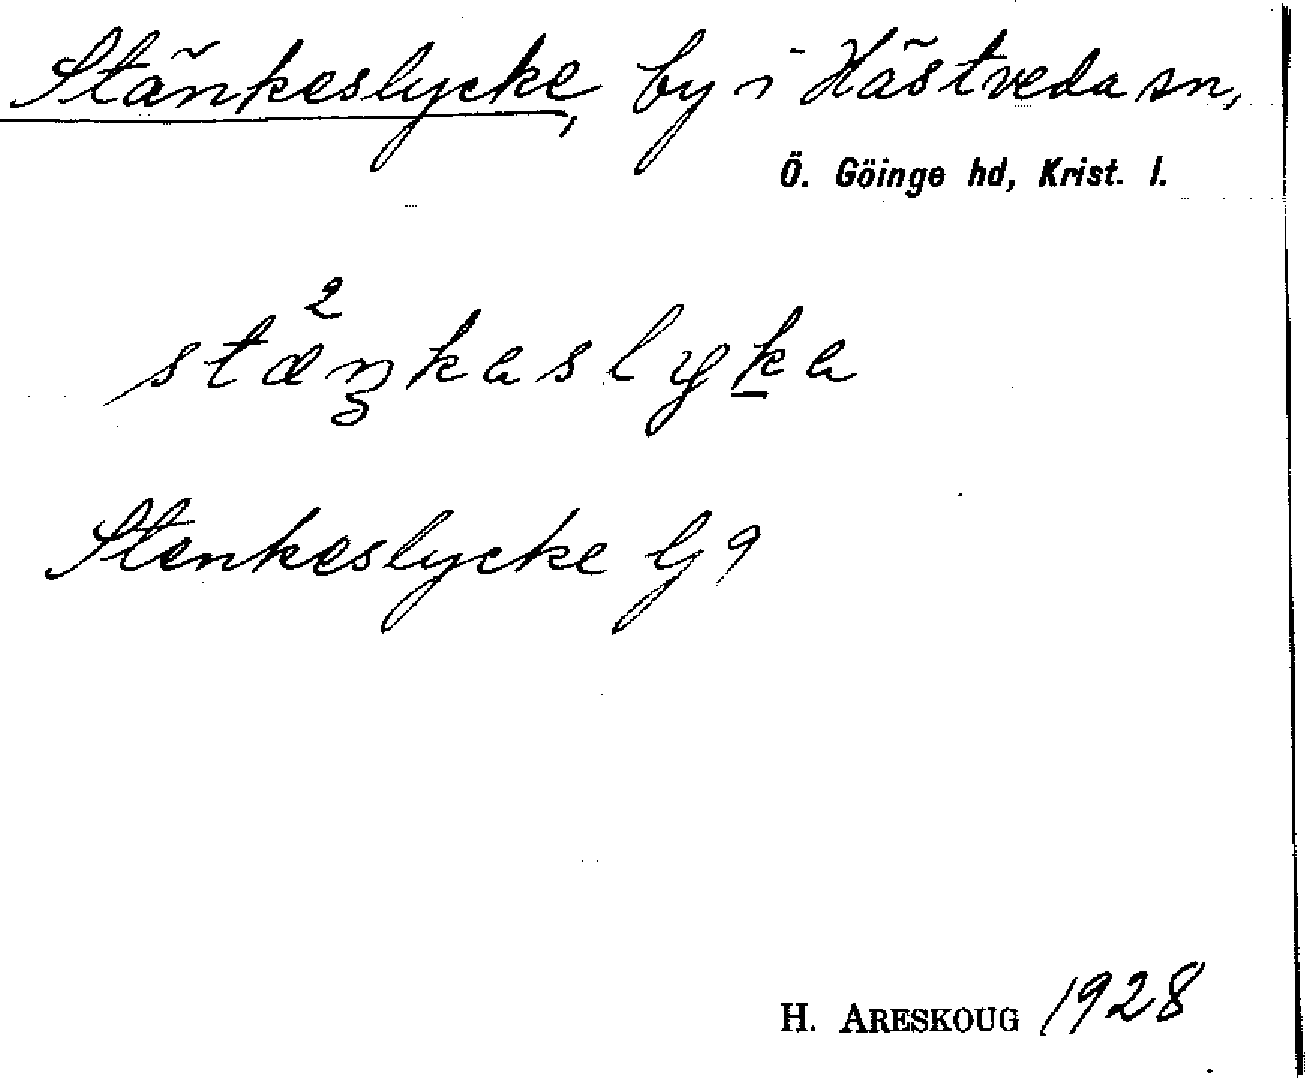 Stänkeslycke, by i Hästveda sn,
Ö. Göinge hd, Krist. l.
2
stæŋkaslyḵa
Stenkeslycke G 9
H. ARESKOUG 1928